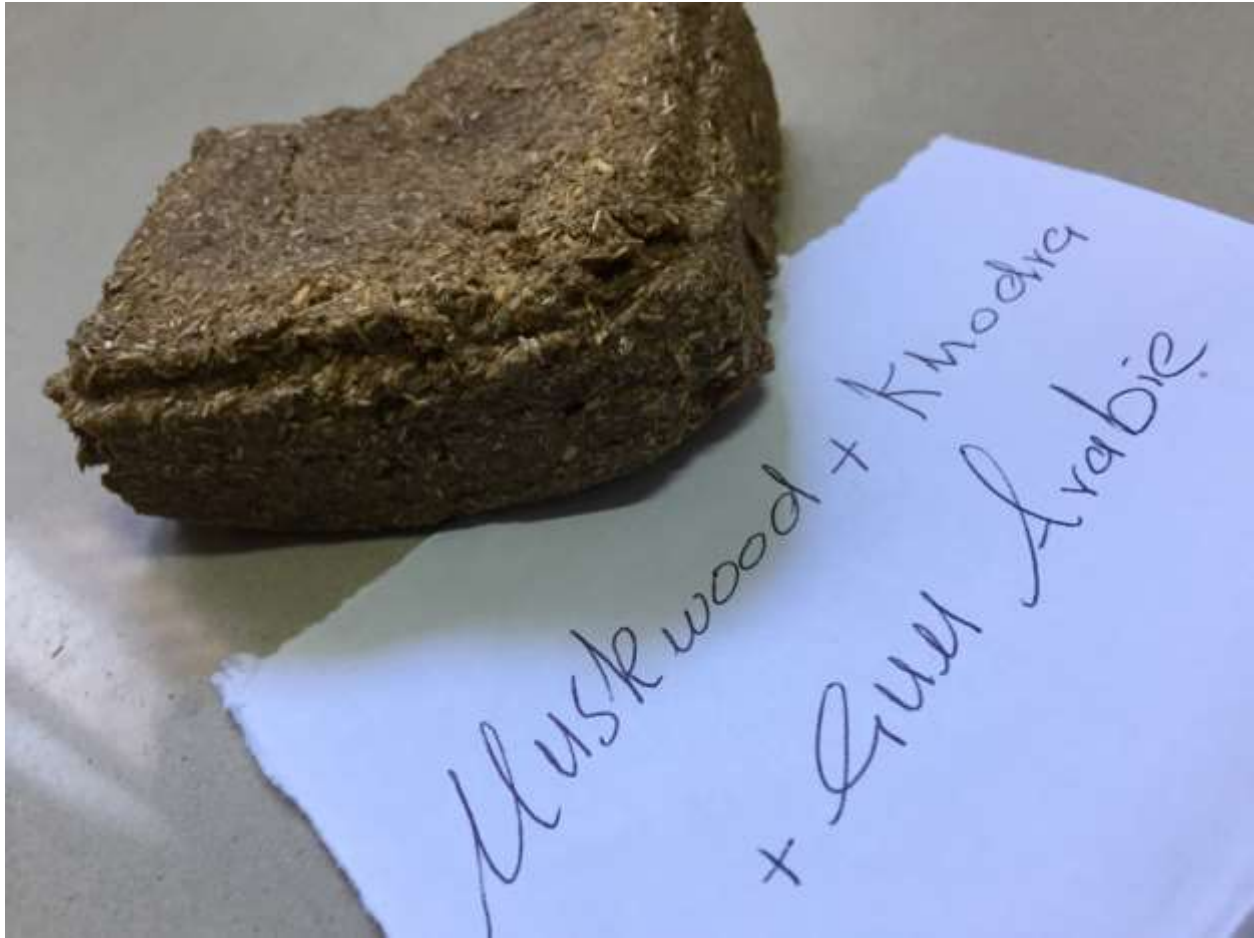 Muskwood + Khodra
+ Gum Arabic